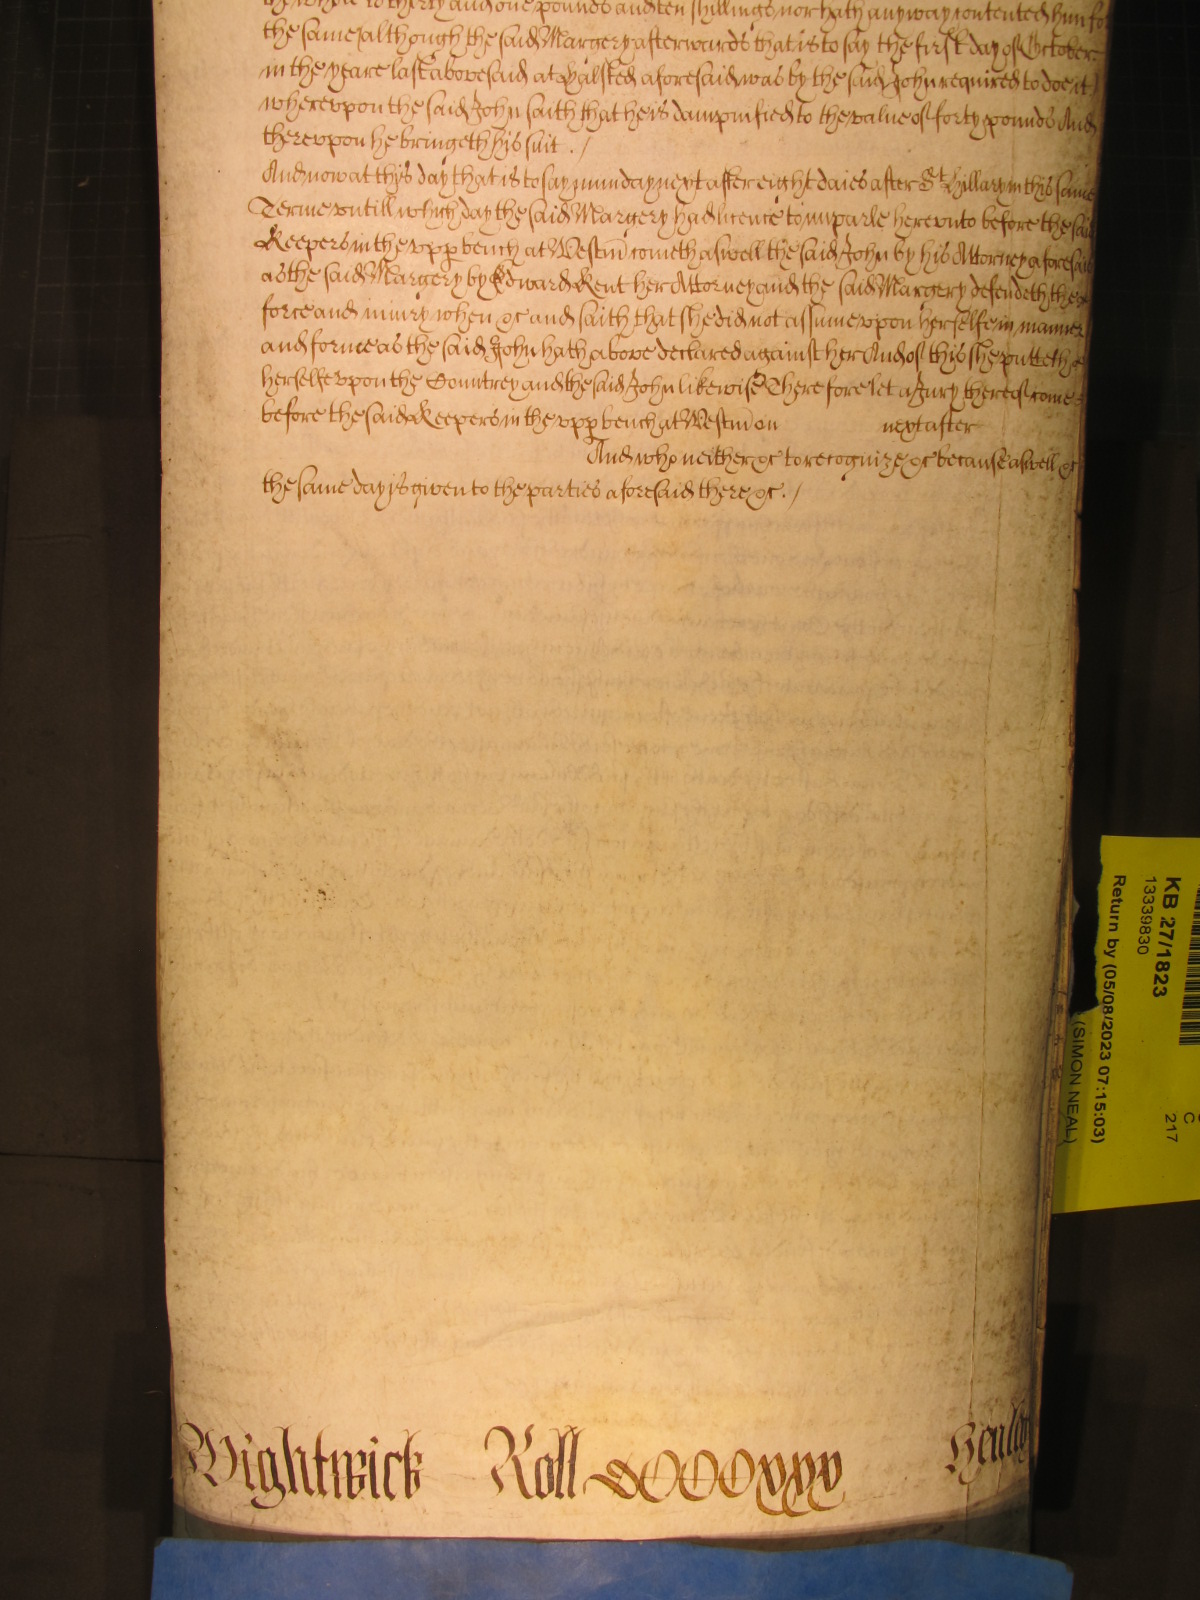 to thirty and one pounds and ten shillings nor hath any way contented him for
the same although the said Margery afterwards that is to say the first day of October
in the yeare last abovesaid at Halsted aforesaid was by the said John required to doe it
wherevpon the said John saith that he is dampnified to the value of forty pounds And
therevpon he bringeth his suit ./
And now at this day that is to say munday next after eight daies after St Hillary in this same
Terme vntill which day the said Margery had licence to imparle herevnto before the said
Keepers in the vpp bench at Westm cometh aswell the said John by his Attorney aforesaid
as the said Margery by Edward Kent her Attorney and the said Margery defendeth the
force and iniury when &c and saith that she did not assume vpon herselfe in manner
and forme as the said John hath above declared against her And of this she putteth
herselfe vpon the Countrey and the said John likewise Therefore let a Jury thereof come
before the said Keepers in the vpp bench at Westm on next after
And who neither &c to recognize &c because aswell &c
the same day is given to the parties aforesaid there &c. /
Wightwick Roll Henley
KB 27/1823
13339830
Return by (05/08/2023 07:15:03)
(SIMON NEAL)
C
217